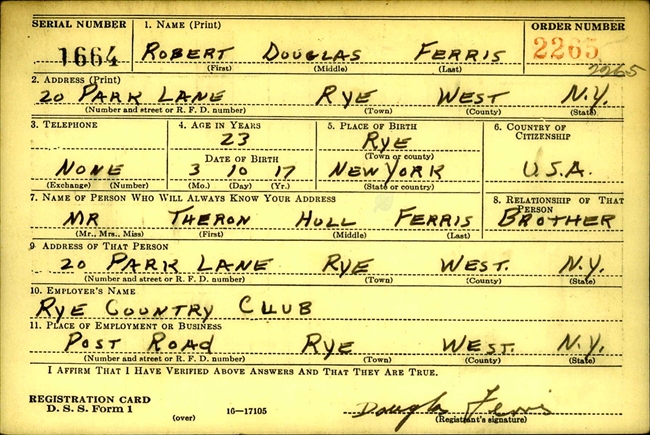 SERIAL NUMBER 1. NAME (Print) ORDER NUMBER
1664 ROBERT DOUGLAS FERRIS 2265
(First) (Middle) (Last) 2265
2. ADDRESS (Print)
20 PARK LANE RYE WEST N.Y.
(Number and street or R. F. D. number) (Town) (County) (State)
3. TELEPHONE 4. AGE IN YEARS 5. PLACE OF BIRTH 6. COUNTRY OF CITIZENSHIP
23 RYE
DATE OF BIRTH (Town or county)
NONE 3 10 17 NEW YORK U.S.A.
(Exchange) (Number) (Mo.) (Day) (Yr.) (State or country)
7. NAME OF PERSON WHO WILL ALWAYS KNOW YOUR ADDRESS 8. RELATIONSHIP OF THAT PERSON
MR THERON HULL FERRIS BROTHER
(Mr., Mrs., Miss) (First) (Middle) (Last)
9. ADDRESS OF THAT PERSON
20 PARK LANE RYE WEST. N.Y.
(Number and street or R. F. D. number) (Town) (County) (State)
10. EMPLOYER'S NAME
RYE COUNTRY CLUB
11. PLACE OF EMPLOYMENT OR BUSINESS
POST ROAD RYE WEST. N.Y.
(Number and street or R. F. D. number) (Town) (County) (State)
I AFFIRM THAT I HAVE VERIFIED ABOVE ANSWERS AND THAT THEY ARE TRUE.
REGISTRATION CARD
D. S. S. Form 1 (over) 16-17105 Douglas Ferris
(Registrant's signature)